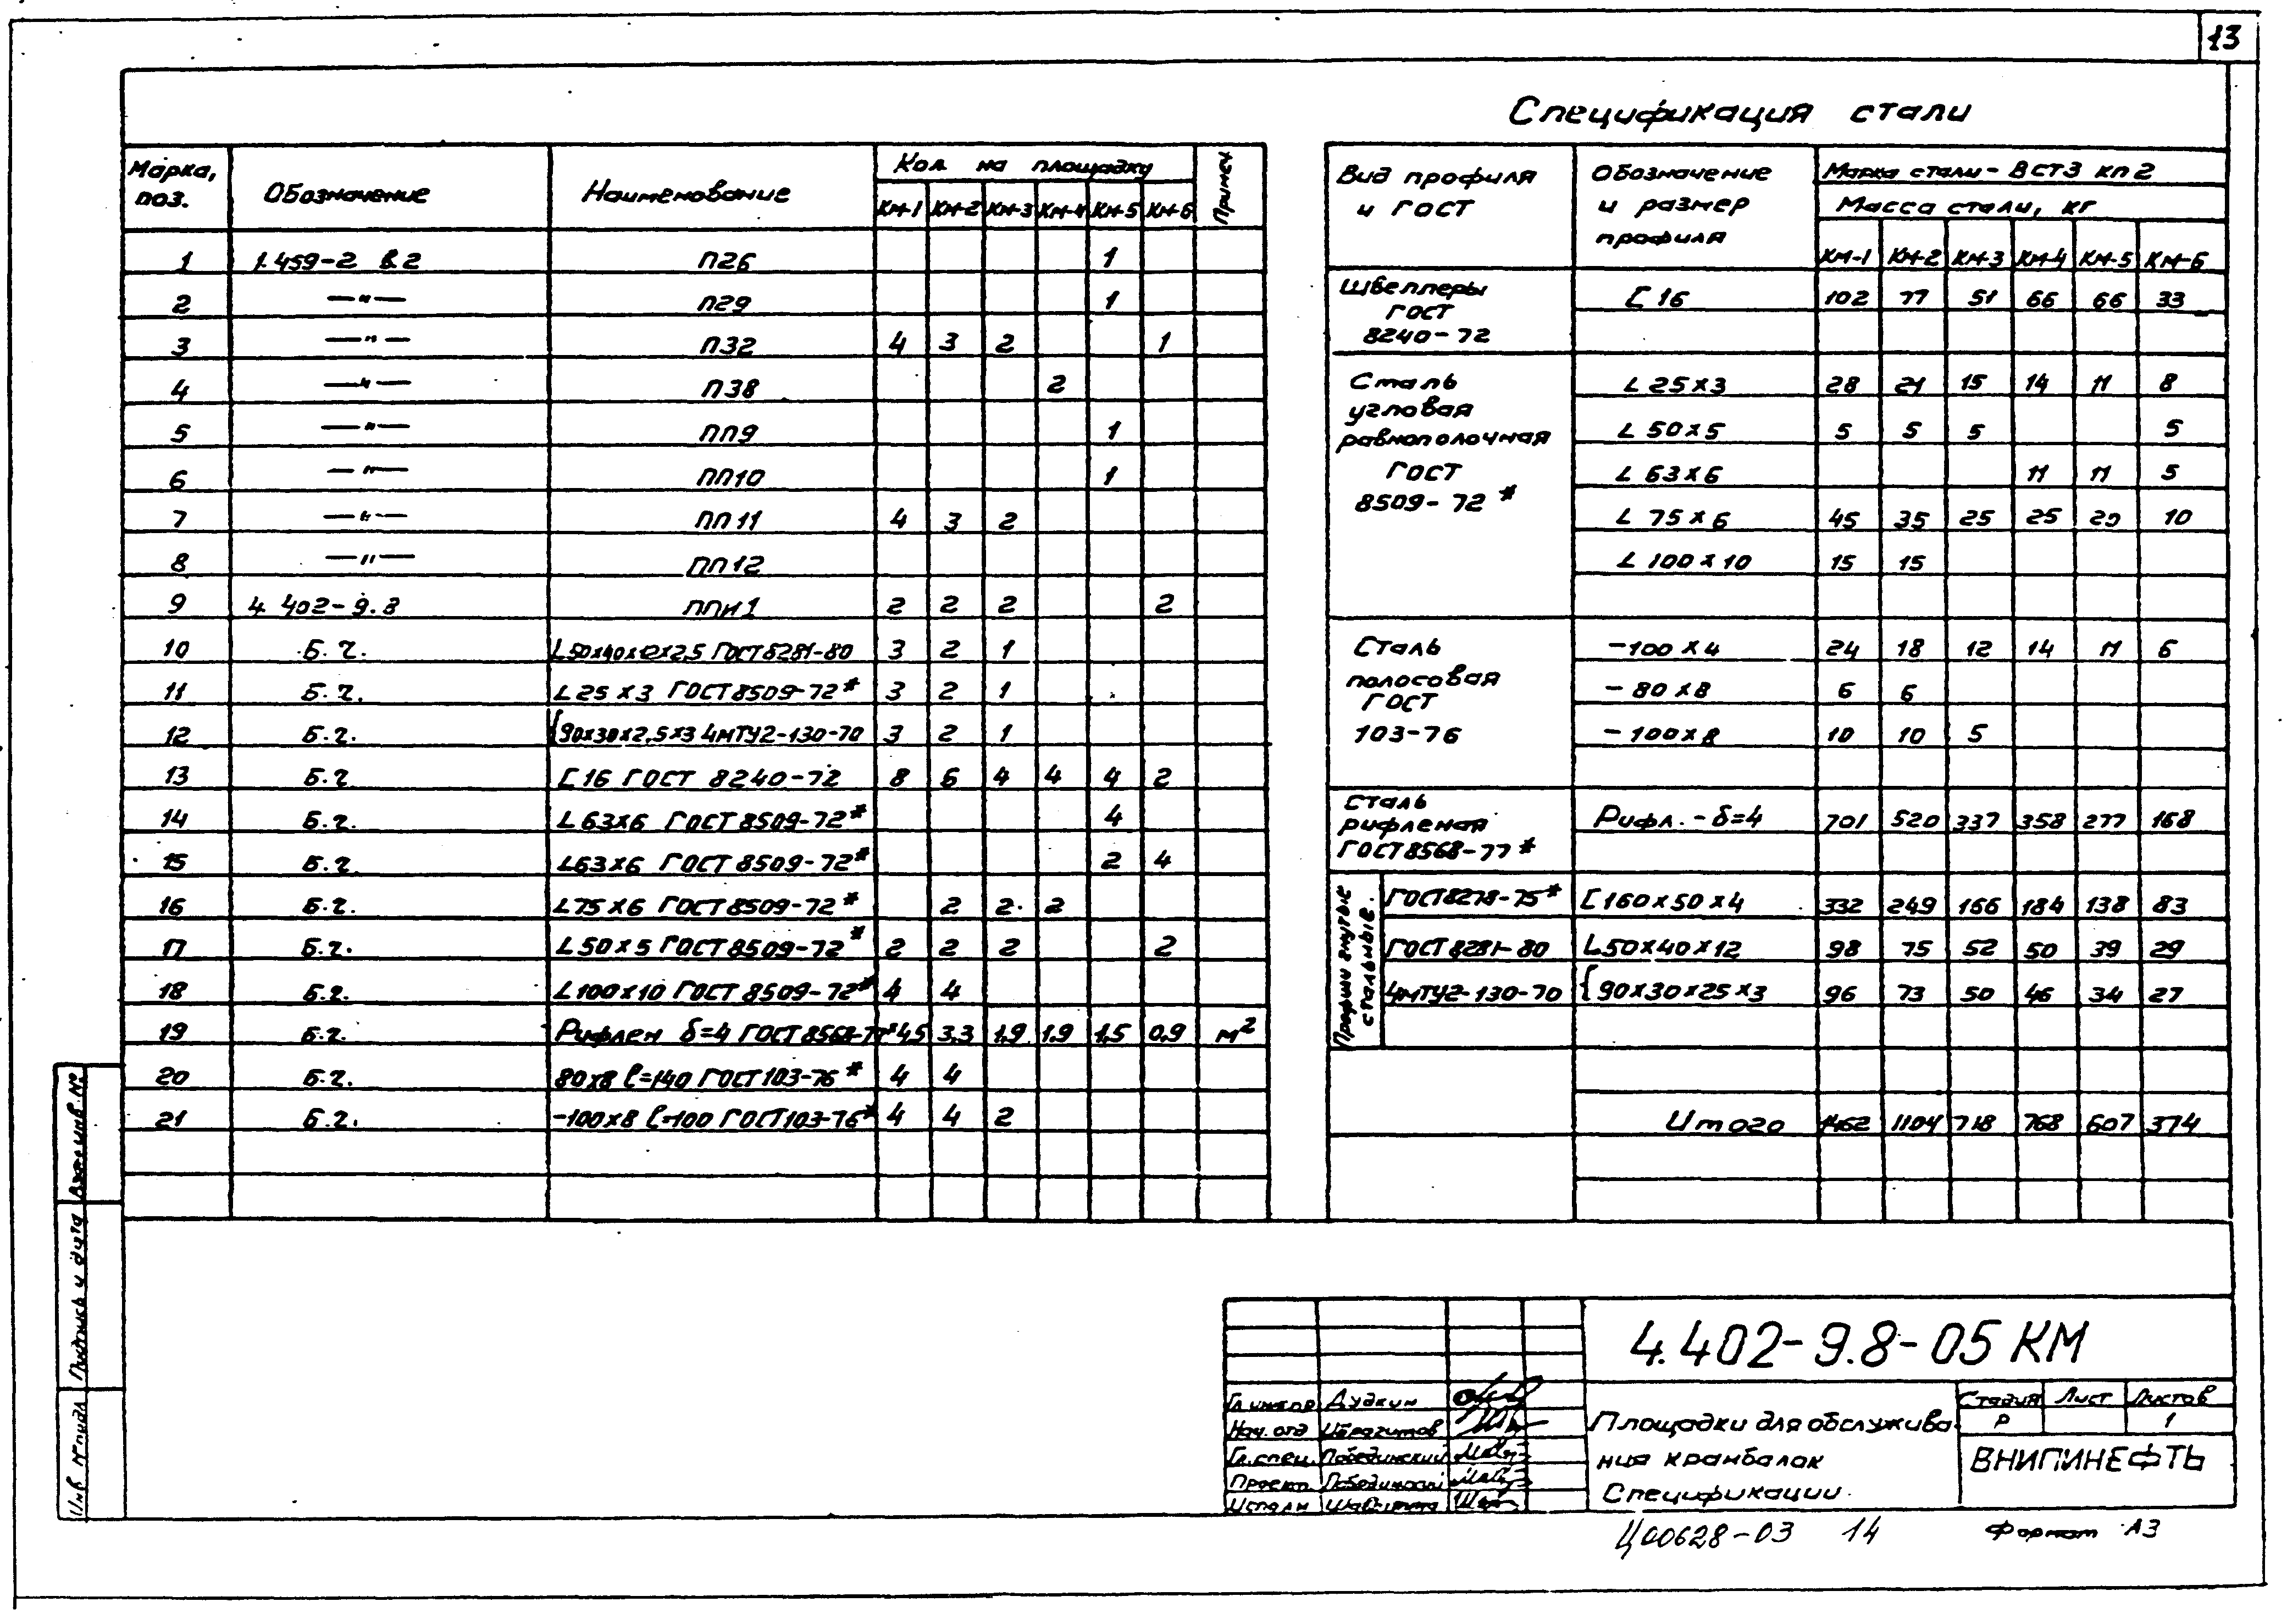 13
Спецификация стали
Марка, поз. Обозначение Наименование Кол на площадку Примеч
КМ-1 КМ-2 КМ-3 КМ-4 КМ-5 КМ-6
1 1.459-2 в2 П26 1
2 —"— П29 1
3 —"— П32 4 3 2 1
4 —"— П38 2
5 —"— ПП9 1
6 —"— ПП10 1
7 —"— ПП11 4 3 2
8 —"— ПП12
9 4 402-9.8 ППИ1 2 2 2 2
10 Б.ч. L50х40х12х2,5 ГОСТ 8281-80 3 2 1
11 Б.ч. L25х3 ГОСТ 8509-72* 3 2 1
12 Б.ч. {90х30х2,5х3 4МТУ2-130-70 3 2 1
13 Б.ч. [16 ГОСТ 8240-72 8 6 4 4 4 2
14 Б.ч. L63х6 ГОСТ 8509-72* 4
15 Б.ч. L63х6 ГОСТ 8509-72* 2 4
16 Б.ч. L75х6 ГОСТ 8509-72* 2 2 2
17 Б.ч. L50х5 ГОСТ 8509-72* 2 2 2 2
18 Б.ч. L100х10 ГОСТ 8509-72* 4 4
19 Б.ч. Рифлен δ=4 ГОСТ 8568-77* 4,5 3,3 1,9 1,9 1,5 0,9 м²
20 Б.ч. 80х8 ℓ=140 ГОСТ 103-76* 4 4
21 Б.ч. -100х8 ℓ=100 ГОСТ 103-76* 4 4 2
Вид профиля и ГОСТ Обозначение и размер профиля Марка стали - ВСТ3 кп2
Масса стали, кг
КМ-1 КМ-2 КМ-3 КМ-4 КМ-5 КМ-6
Швеллеры ГОСТ 8240-72 [16 102 77 51 66 66 33
Сталь угловая равнополочная ГОСТ 8509-72*
L 25х3 28 21 15 14 11 8
L 50х5 5 5 5 5
L 63х6 11 11 5
L 75х6 45 35 25 25 20 10
L 100х10 15 15
Сталь полосовая ГОСТ 103-76
-100х4 24 18 12 14 11 6
-80х8 6 6
-100х8 10 10 5
Сталь рифленая ГОСТ 8568-77* Рифл. - δ=4 701 520 337 358 277 168
Профили гнутые стальные.
ГОСТ 8278-75* [160х50х4 332 249 166 184 138 83
ГОСТ 8281-80 L50х40х12 98 75 52 50 39 29
4МТУ2-130-70 {90х30х25х3 96 73 50 46 34 27
Итого 1462 1104 718 768 607 374
Взам инв. №
Подпись и дата
Инв № подл
4.402-9.8-05 КМ
Гл инж пр Дудкин
Нач. отд Ибрагимов
Гл. спец. Побединский
Проект. Побединский
Исполн
Площадки для обслужива-
ния кранбалок
Спецификации.
Стадия Лист Листов
Р 1
ВНИПИНЕФТЬ
Ц00628-03 14 Формат А3